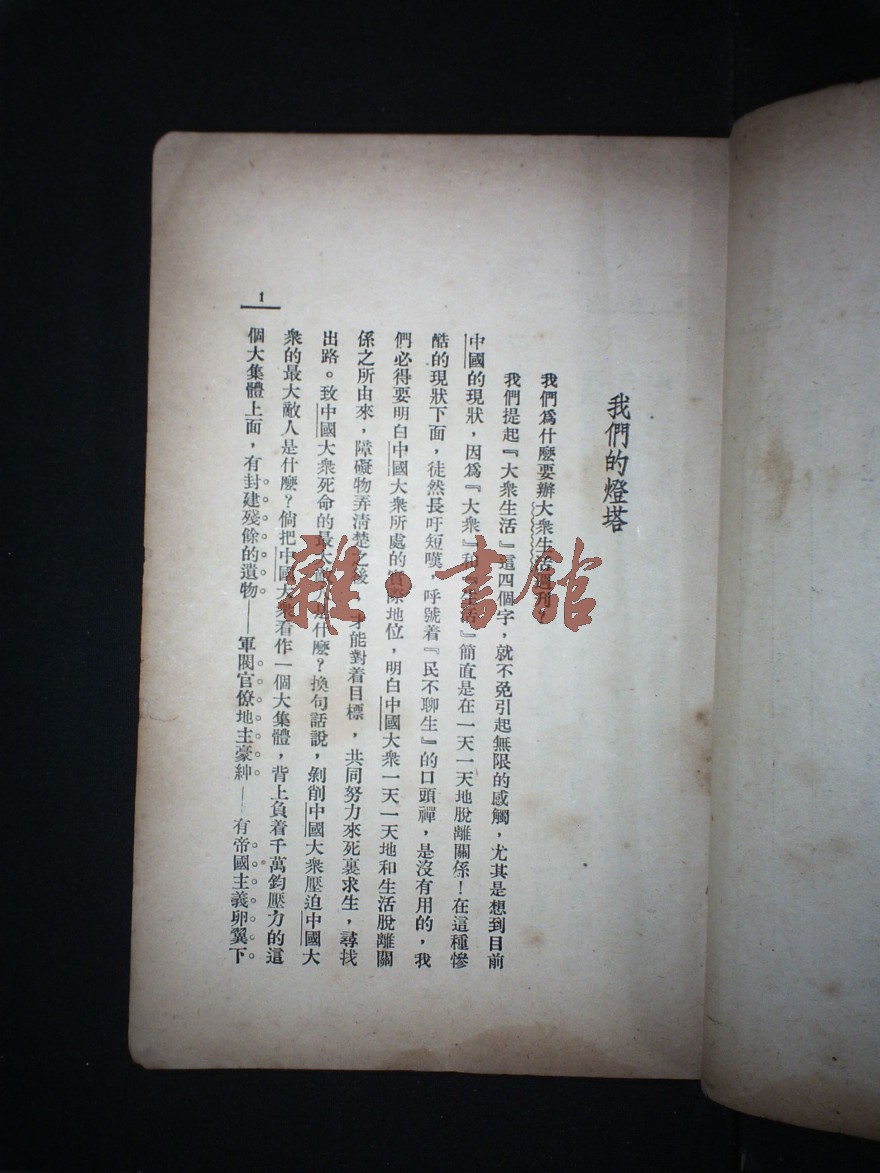 我們的燈塔
我們爲什麼要辦大衆生活週刊？
我們提起『大衆生活』這四個字，就不免引起無限的感觸，尤其是想到目前
中國的現狀，因爲『大衆』和『生活』簡直是在一天一天地脫離關係！在這種慘
酷的現狀下面，徒然長吁短嘆，呼號着『民不聊生』的口頭禪，是沒有用的，我
們必得要明白中國大衆所處的實際地位，明白中國大衆一天一天地和生活脫離關
係之所由來，障礙物弄清楚之後，才能對着目標，共同努力來死裏求生，尋找
出路。致中國大衆死命的最大敵人是什麼？換句話說，剝削中國大衆壓迫中國大
衆的最大敵人是什麼？倘把中國大衆看作一個大集體，背上負着千萬鈞壓力的這
個大集體上面，有封建殘餘的遺物——軍閥官僚地主豪紳——有帝國主義卵翼下
1
雜·書館